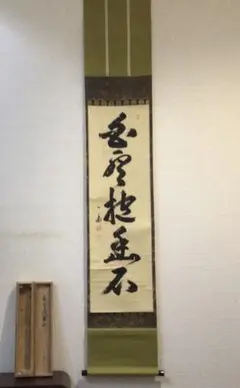 白雲抱幽石